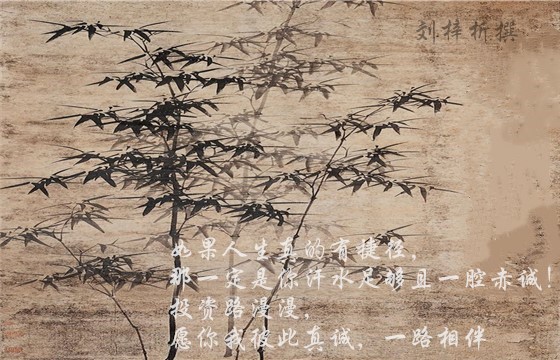 刘梓析撰
如果人生真的有捷径，
那一定是你汗水足够且一腔赤诚！
投资路漫漫，
愿你我彼此真诚，一路相伴